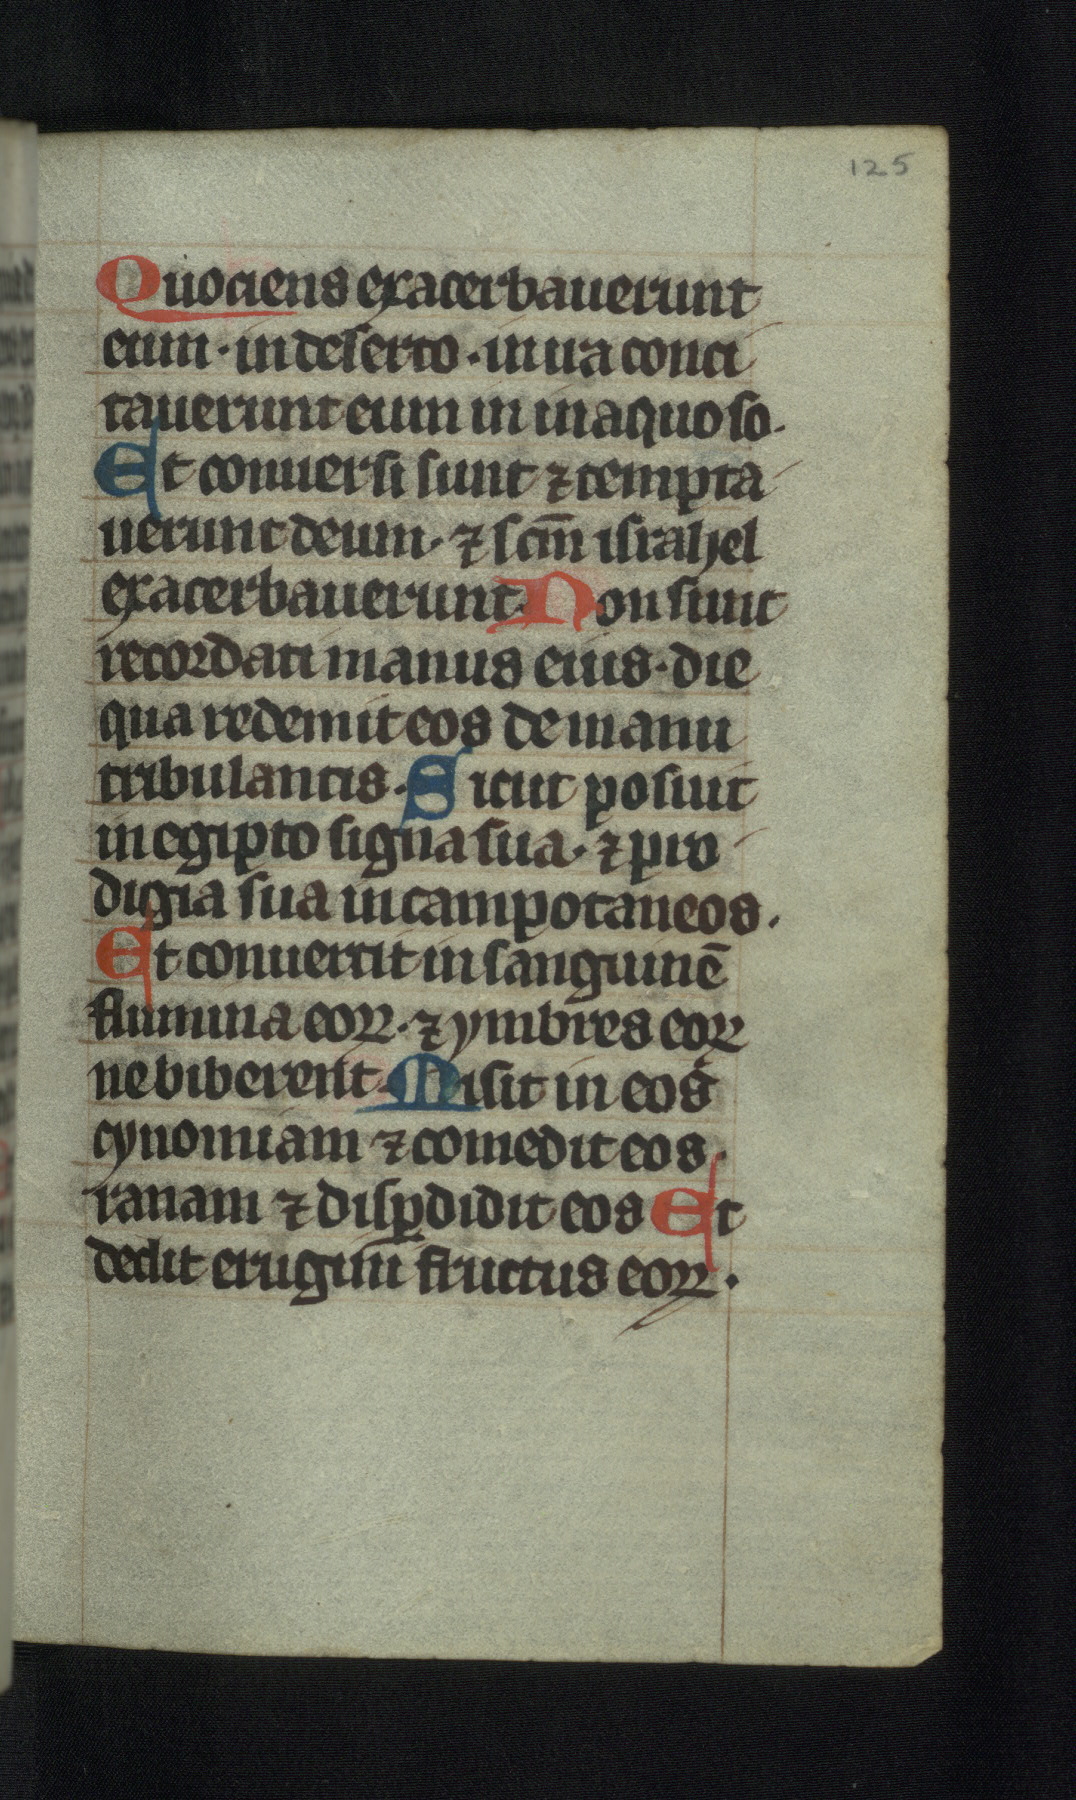 125
Quociens exacerbauerunt
eum · in deserto · in ira conci
tauerunt eum in inaquoso ·
Et conuersi sunt ⁊ tempta
uerunt deum · ⁊ scm̄ israhel
exacerbauerunt · Non sunt
recordati manus eius · die
qua redemit eos de manu
tribulantis · Sicut posuit
in egipto signa sua · ⁊ pro
digia sua in campo taneos ·
Et conuertit in sanguinē
flumina eoꝝ · ⁊ ymbres eoꝝ
ne biberent · Misit in eos
cynomiam ⁊ comedit eos ·
ranam ⁊ disꝑdidit eos Et
dedit erugini fructus eoꝝ ·